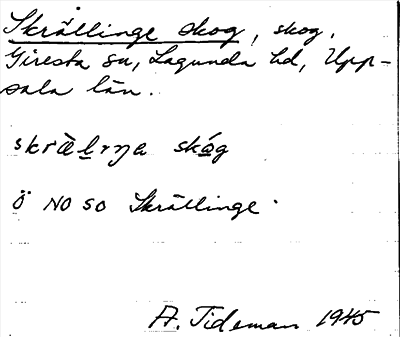 Skrällinge skog, skog,
Giresta sn, Lagunda hd, Upp-
sala län.
skrä̀lıŋa skóg
Ö NO SO Skrällinge.
A. Tideman 1945